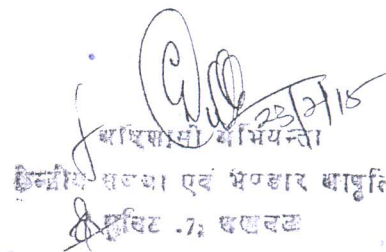 23/7/15
अधिशासी अभियन्ता
केन्द्रीय सज्जा एवं भण्डार आपूर्ति
यूनिट -7, लखनऊ